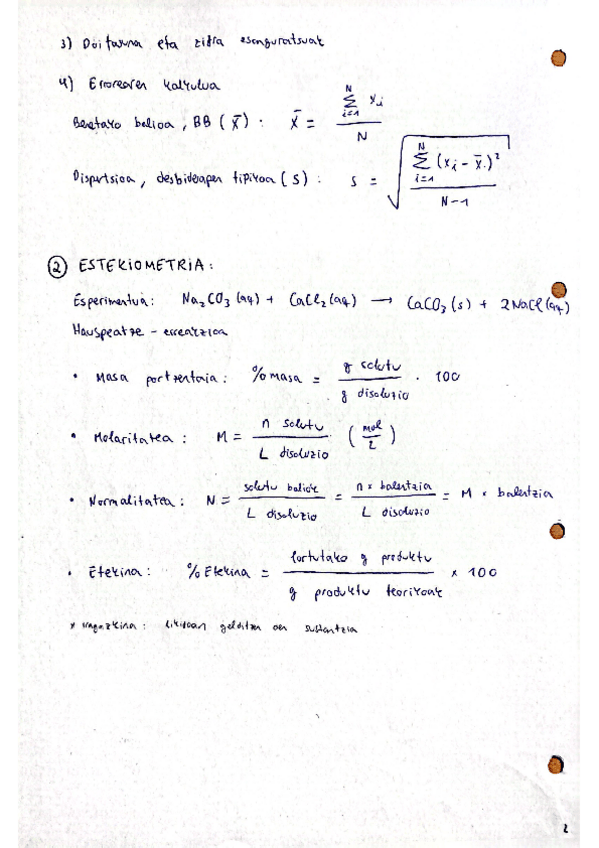 3) Doitasuna eta zifra esanguratsuak
4) Errorearen kalkulua
Batezbesteko balioa, BB (x̄): x̄ = ∑ᵢ₌₁ᴺ xᵢ / N
Dispertsioa, desbiderapen tipikoa (s): s = √( ∑ᵢ₌₁ᴺ (xᵢ - x̄)² / N-1 )
② ESTEKIOMETRIA:
Esperimentua: Na₂CO₃(aq) + CaCl₂(aq) → CaCO₃(s) + 2NaCl(aq)
Hauspeatze - erreakzioa
• Masa portzentaia: % masa = g solutu / g disoluzio · 100
• Molaritatea: M = n solutu / L disoluzio (mol / L)
• Normalitatea: N = solutu baliok / L disoluzio = n × balentzia / L disoluzio = M × balentzia
• Etekina: % Etekina = lortutako g produktu / g produktu teorikoak × 100
* iragazkina: likidoan gelditzen den substantzia
2